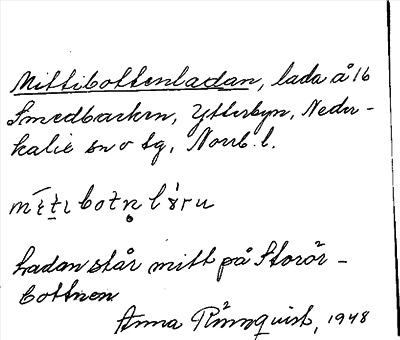 Mittibottenladan, lada å 16
Smedbacken, Ytterbyn, Neder-
kalix sn o tg, Norrb. l.
Ladan står mitt på Storör-
bottnen
Anna Rönnquist, 1948